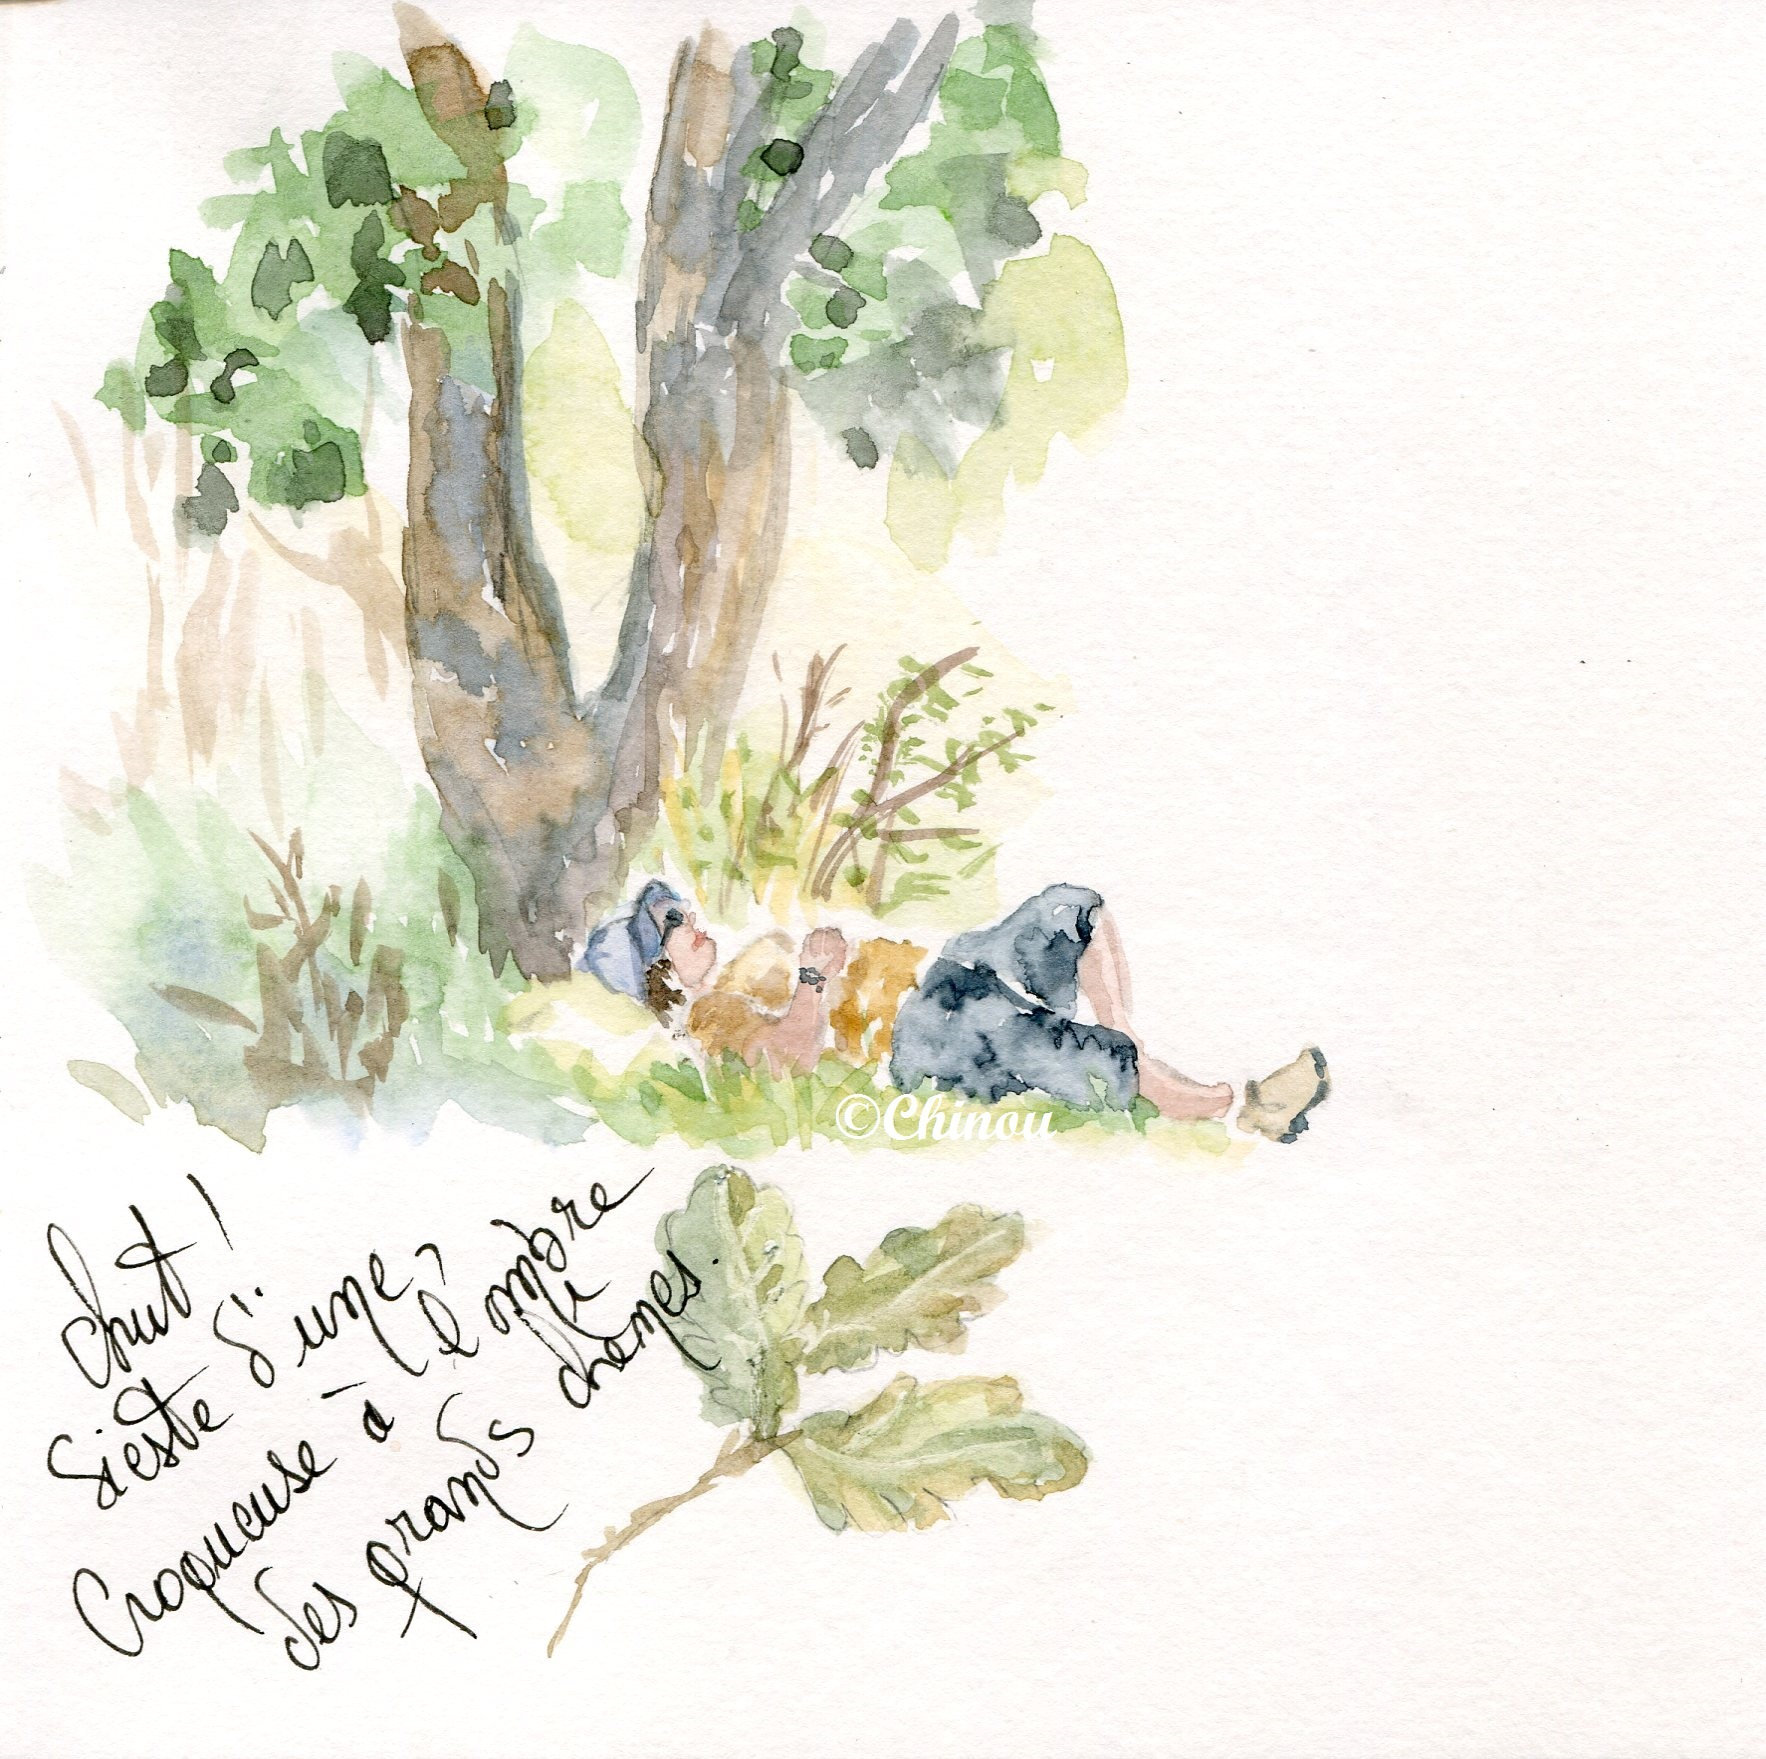 ©Chinou
Chut !
Sieste d'une
Croqueuse à l'ombre
des grands chênes.